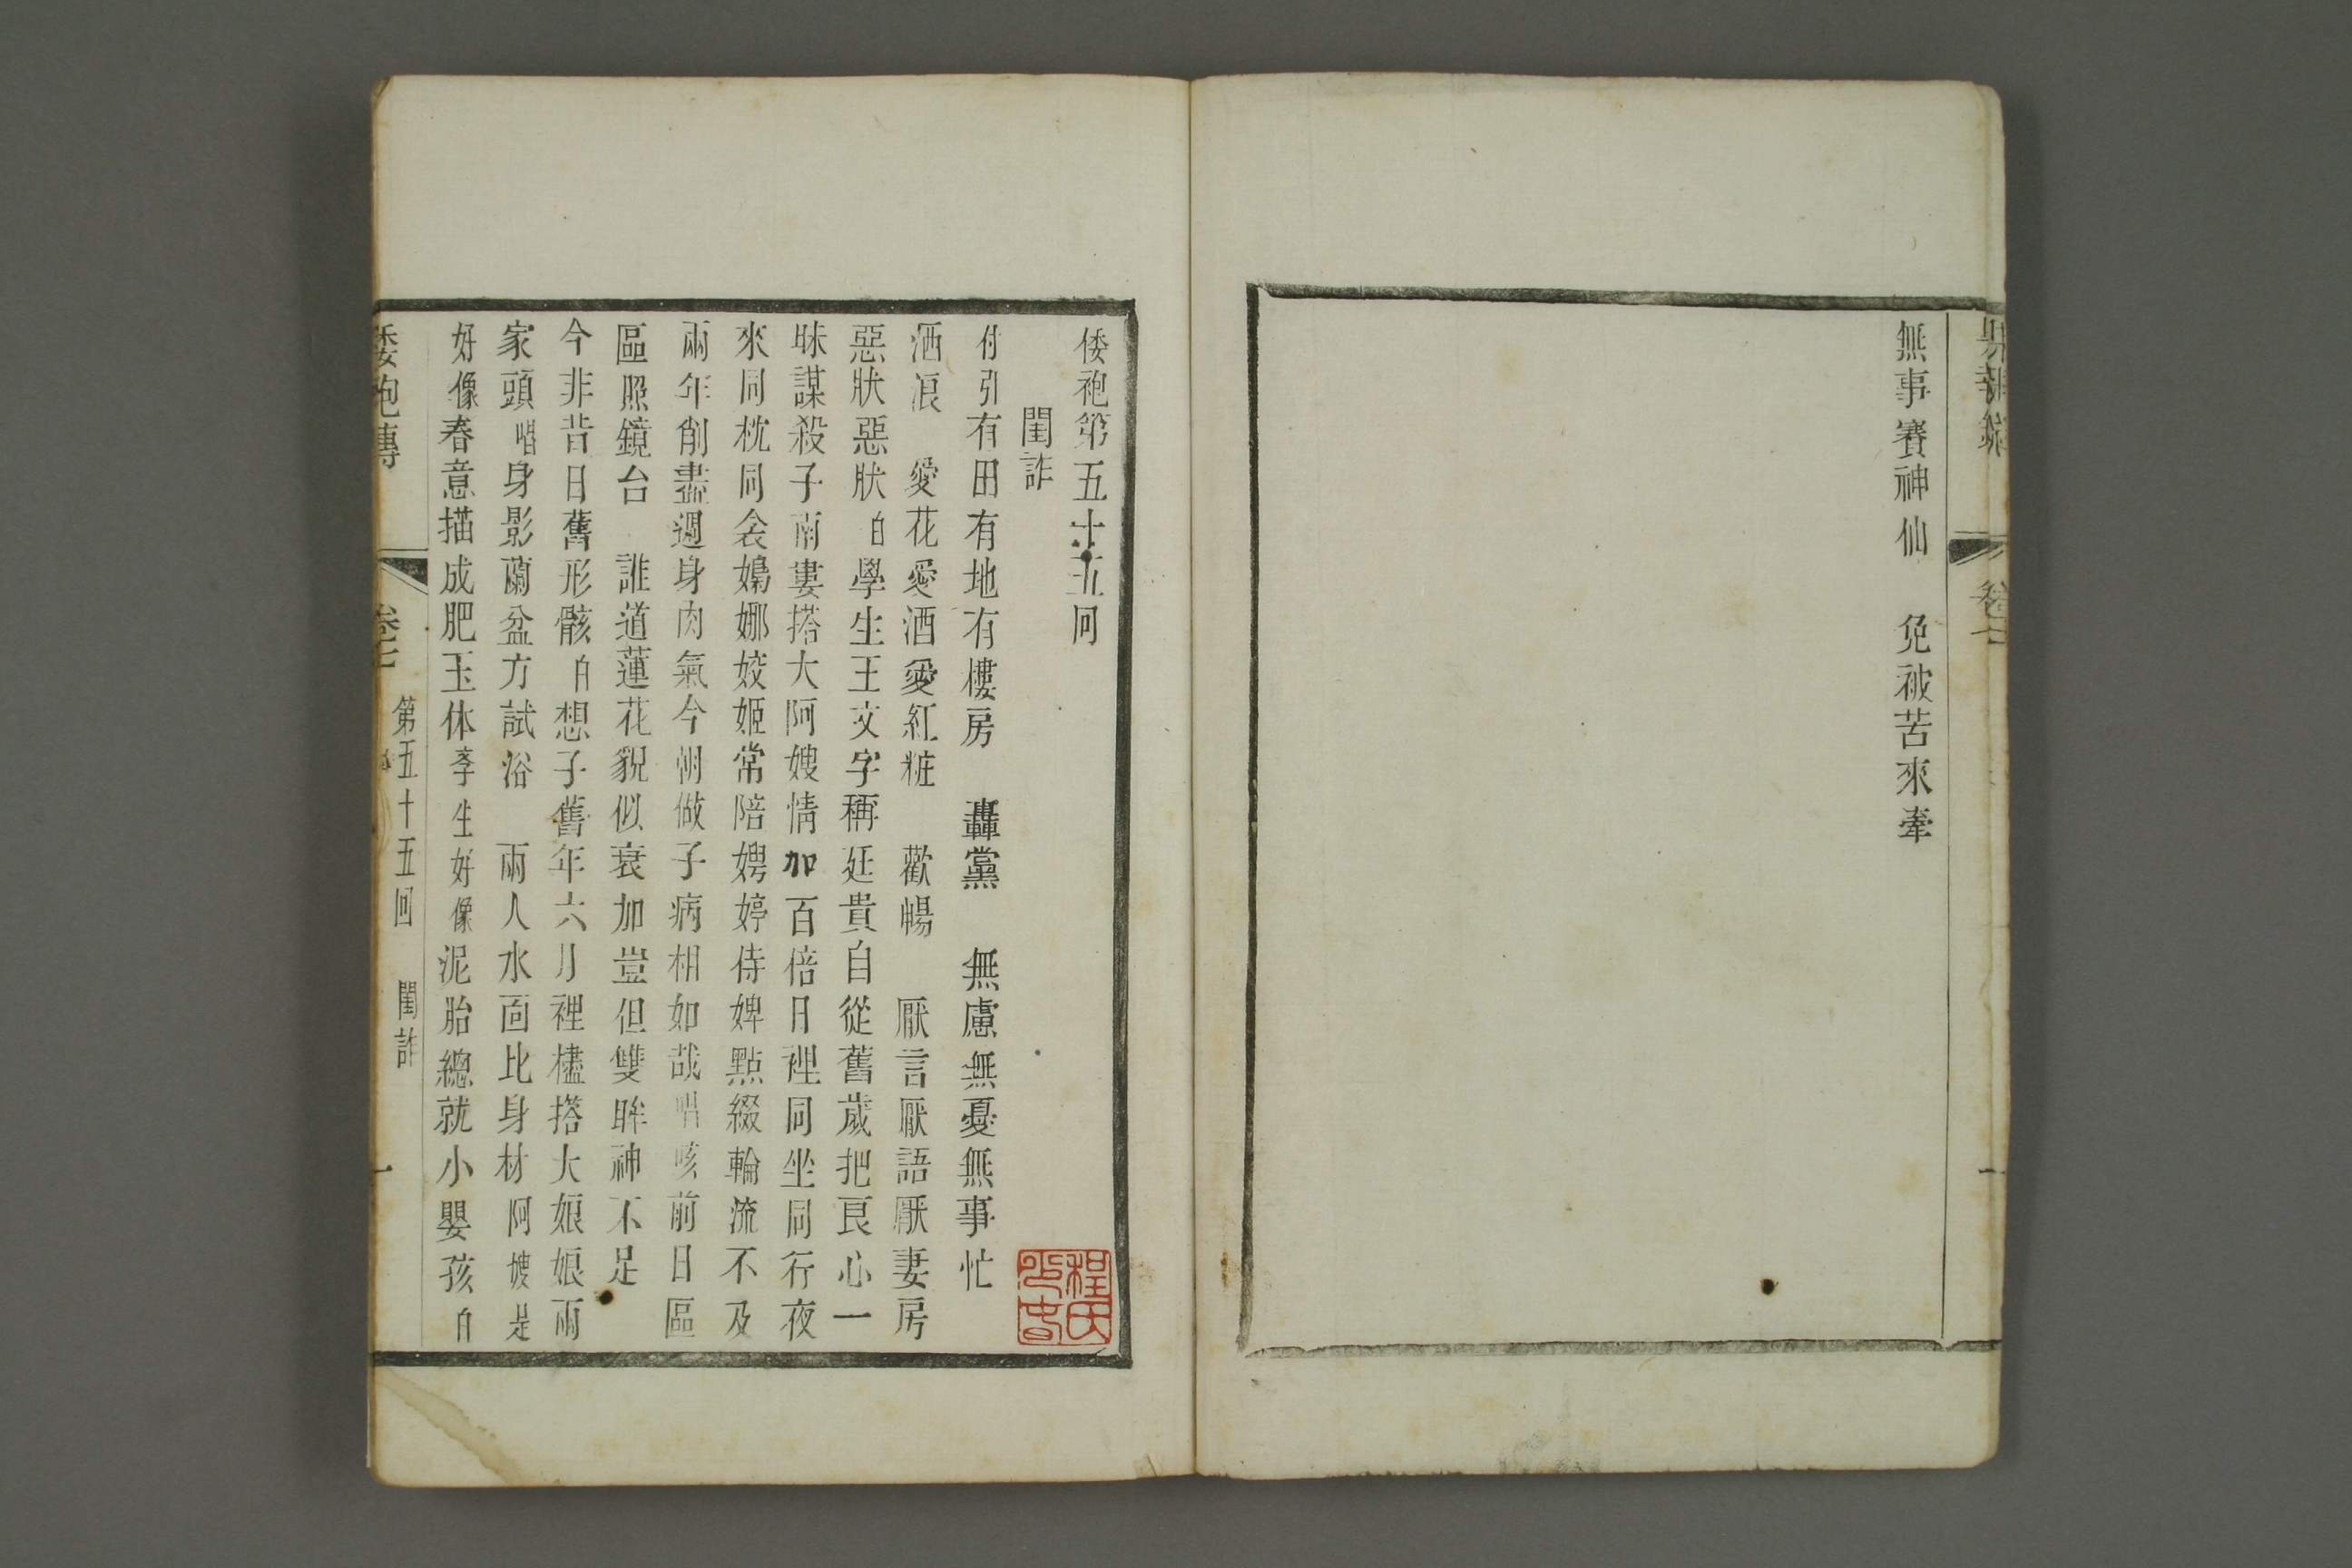 無事賽神仙　免被苦來牽
倭袍第五十五回
閨詐
付引有田有地有樓房　轟黨　無慮無憂無事忙
酒浪　愛花愛酒愛紅粧　歡暢　厭言厭語厭妻房
惡狀惡狀白學生王文字稱廷貴自從舊歲把良心一
昧謀殺子南婁搭大阿嫂情加百倍日裡同坐同行夜
來同枕同衾嬝娜姣姬常陪娉婷侍婢點綴輪流不及
兩年削盡週身肉氣今朝做子病相如哉唱咳前日區
區照鏡台　誰道蓮花貌似衰加豈但雙眸神不足
今非昔日舊形骸白想子舊年六月裡檯搭大娘娘兩
家頭唱身影蘭盆方試浴　兩人水面比身材阿嫂是
好像春意描成肥玉体李生好像泥胎總就小嬰孩白
倭袍傳　卷七　第五十五回　閨詐　一
程氏